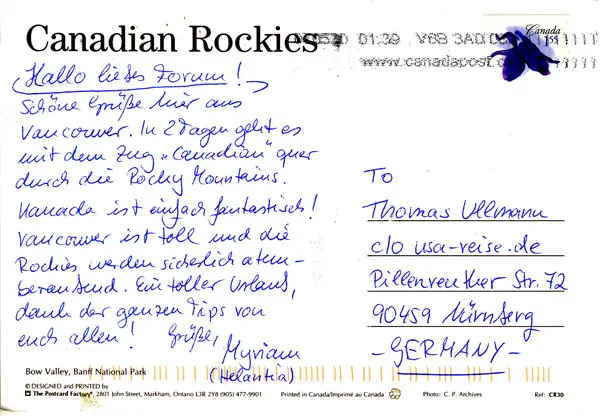 Canadian Rockies
01:30 V6B 3A0
www.canadapost.
Canada
1.55
(Hallo liebes Forum!)
Schöne Grüße hier aus
Vancouver. In 2 Tagen geht es
mit dem Zug „Canadian" quer
durch die Rocky Mountains.
Kanada ist einfach fantastisch!
Vancouver ist toll und die
Rockies werden sicherlich atem-
beraubend. Ein toller Urlaub,
dank der ganzen Tips von
euch allen! Grüße,
Myriam
(Helantia)
To
Thomas Ullmann
c/o usa-reise.de
Pillenreuther Str. 72
90459 Nürnberg
- GERMANY -
Bow Valley, Banff National Park
© DESIGNED and PRINTED by
The Postcard Factory® 2801 John Street, Markham, Ontario L3R 2Y8 (905) 477-9901
Printed in Canada/Imprimé au Canada
Photo: C. P. Archives
Ref: CR30